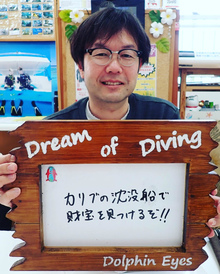 Dream of Diving
カリブの沈没船で
財宝を見つけるぞ!!
Dolphin Eyes